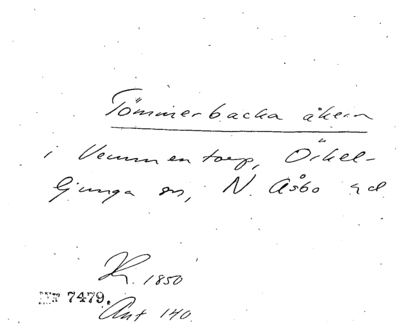 Tömmerbacka åkern
i Vemmentorp, Örkel-
ljunga sn, N. Åsbo hd
K. 1850
Nr 7479.
Ant 140